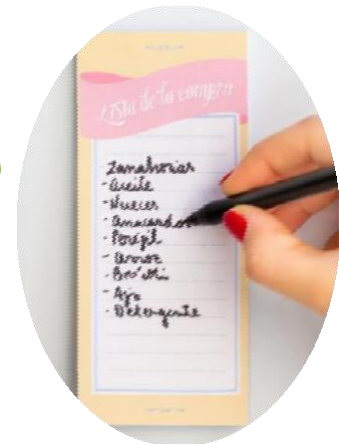 Lista de la compra
Zanahorias
- Aceite
- Nueces
- Anacardos
- Perejil
- Arroz
- Ajo
- Detergente